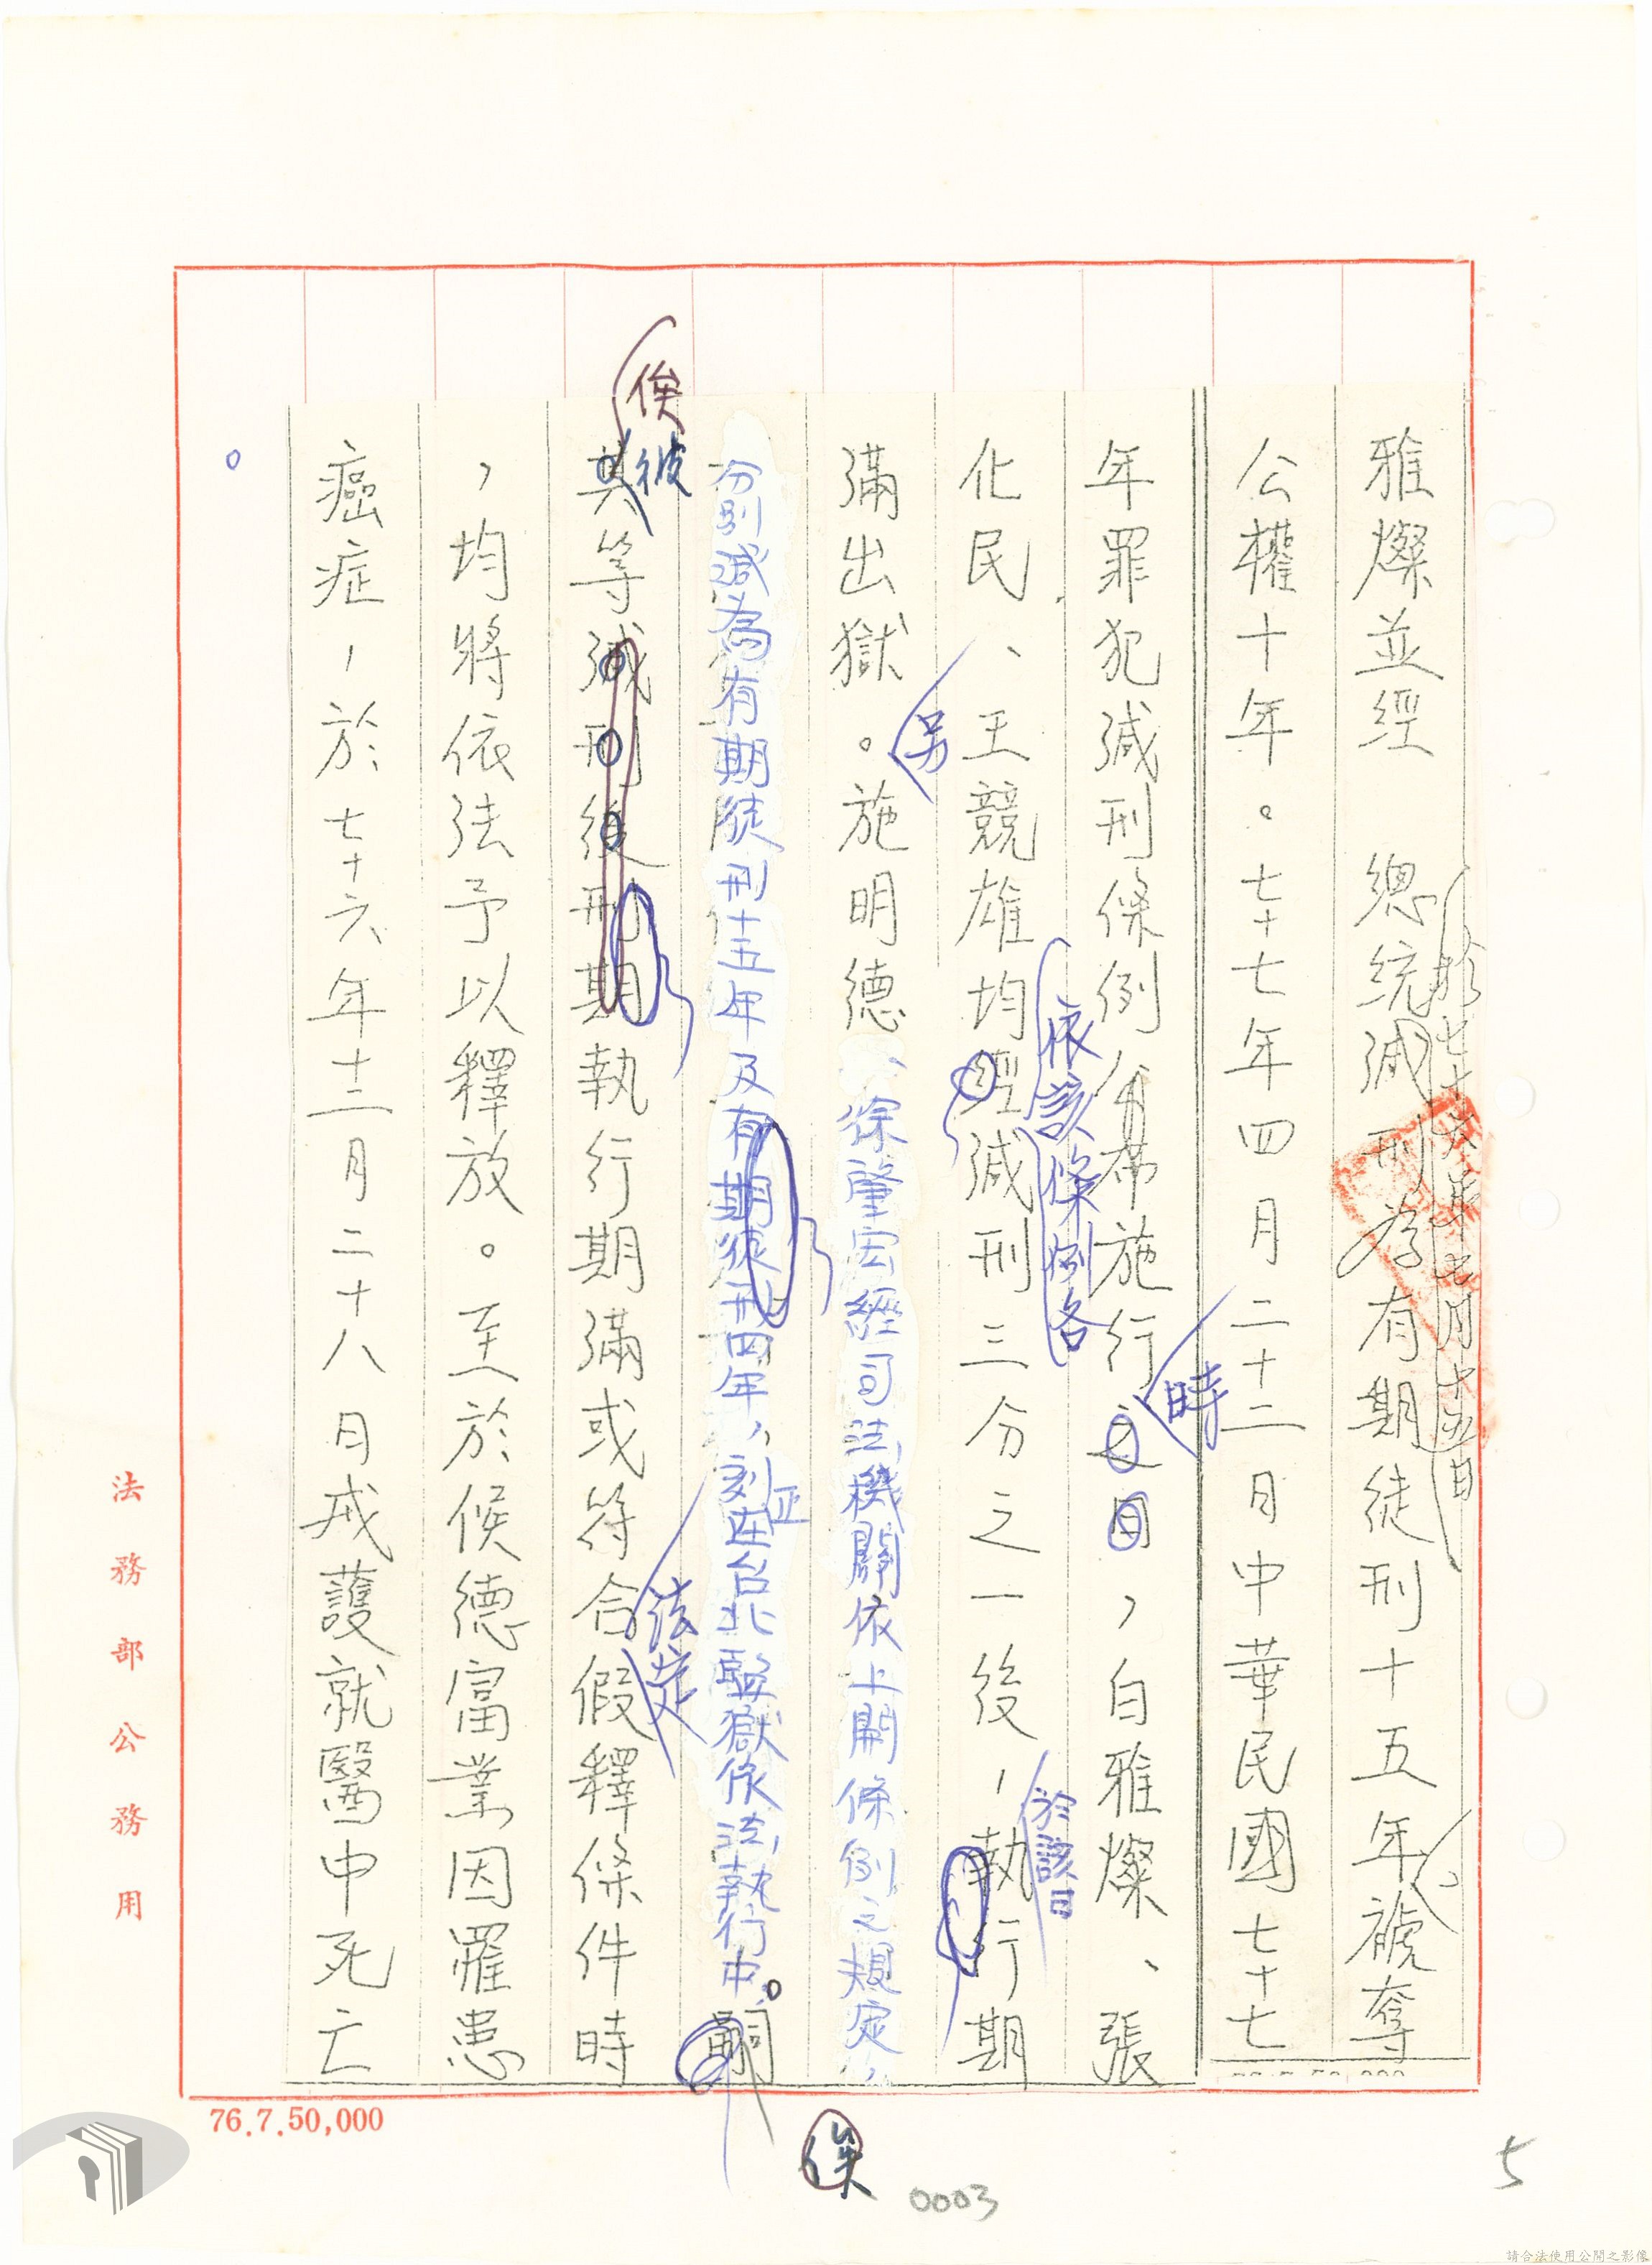 雅燦並經　總統減刑為有期徒刑十五年褫奪
於七十六年七月十五日
公權十年。七十七年四月二十二日中華民國七十七
時
年罪犯減刑條例公布施行之日，白雅燦、張
依該條例各
於該日
化民、王競雄均經減刑三分之一後，執行期
另
滿出獄。施明德、徐肇宏經司法機關依上開條例之規定，
分別減為有期徒刑十五年及有期徒刑四年，刻正在台北監獄依法執行中。嗣
俟
彼
法定
其等減刑後刑期執行期滿或符合假釋條件時
，均將依法予以釋放。至於候德富業因罹患
癌症，於七十六年十二月二十八日戒護就醫中死亡
。
俟
法務部公務用
76.7.50,000
0003
5
請合法使用公開之影像